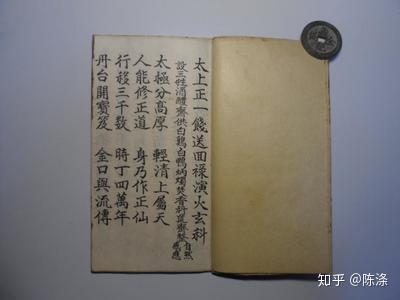 太上正一餞送回祿演火玄科
設三牲酒醴齋供白鷄白鴨炳燭焚香科畢齋自然
應
太極分高厚 輕清上屬天
人能修正道 身乃作正仙
行移三千数 時丁四萬年
丹台開寶笈 金口與流傳
知乎 @陈涤